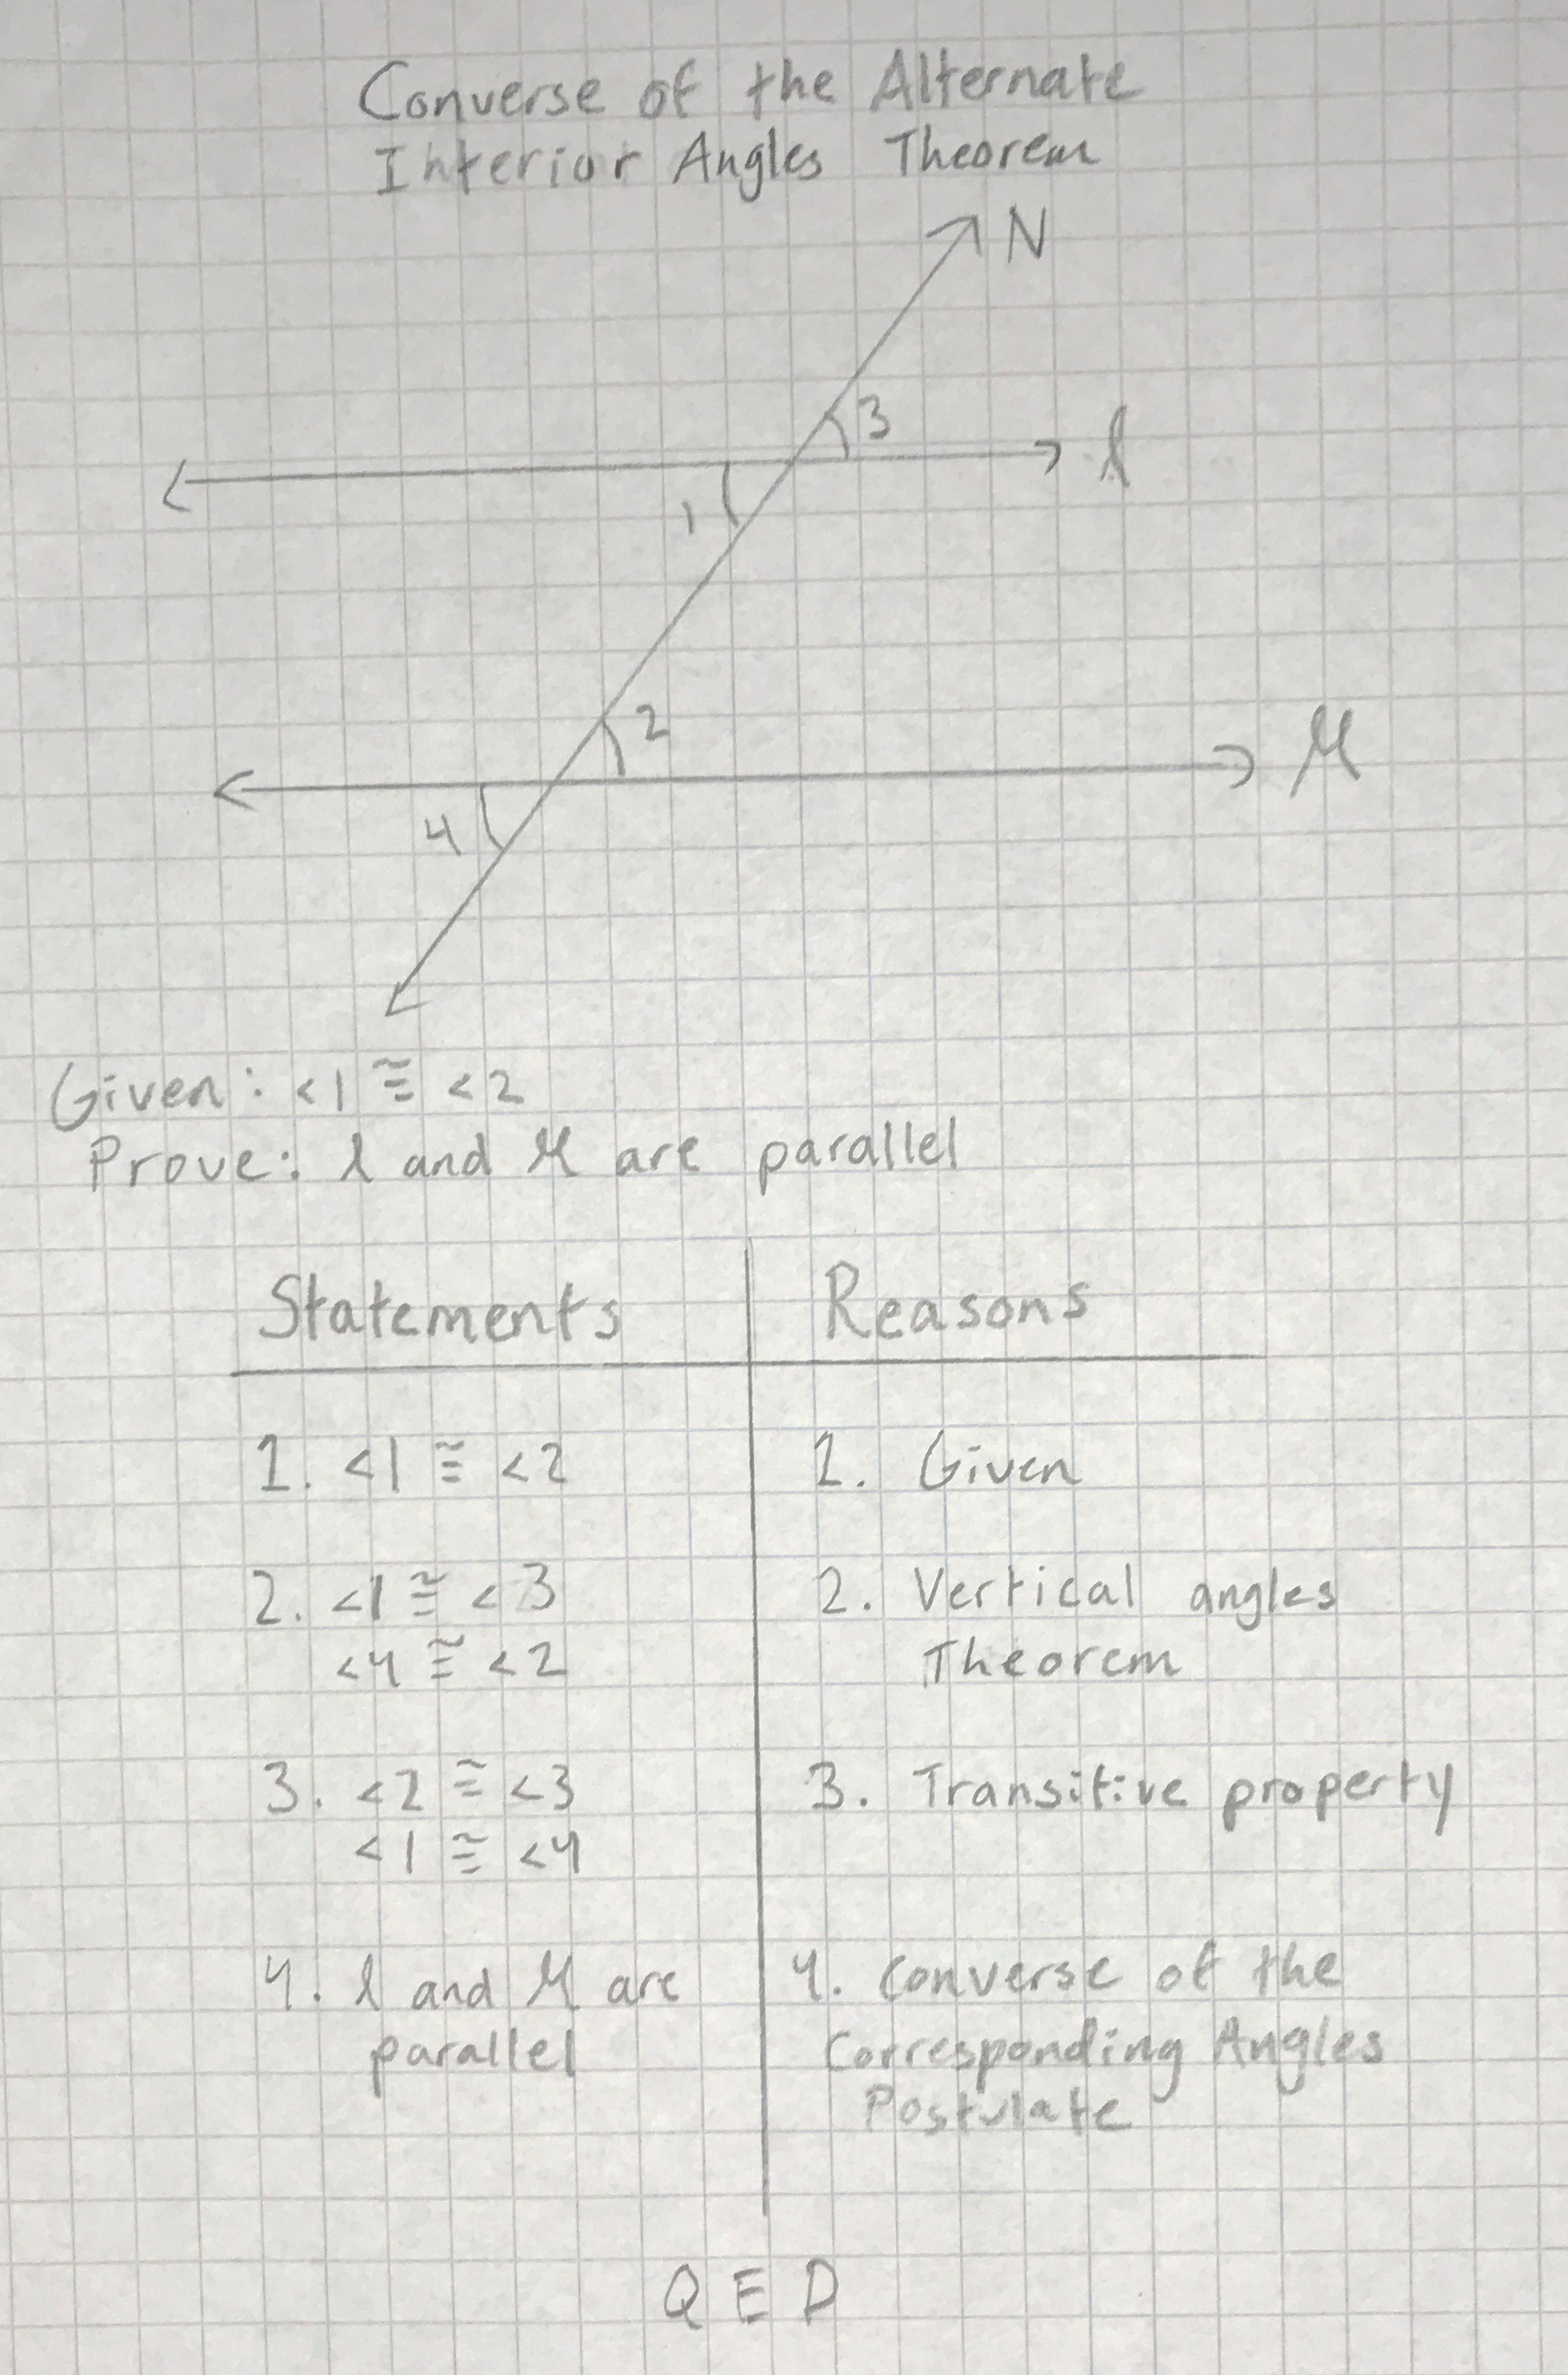 Converse of the Alternate
Interior Angles Theorem
N
3
l
1
2
M
4
Given: <1 ≅ <2
Prove: l and M are parallel
Statements
Reasons
1. <1 ≅ <2
1. Given
2. <1 ≅ <3
<4 ≅ <2
2. Vertical angles
Theorem
3. <2 ≅ <3
<1 ≅ <4
3. Transitive property
4. l and M are
parallel
4. Converse of the
Corresponding Angles
Postulate
QED